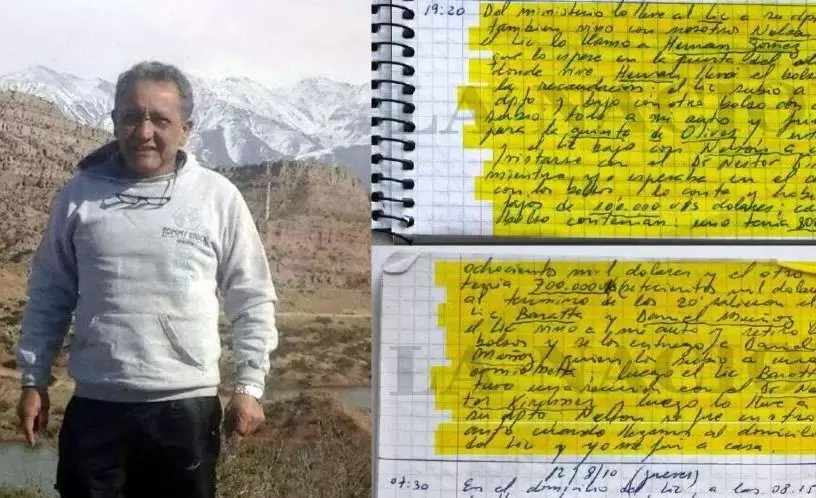 TOMMY
19:20 Del ministerio lo lleve al Lic a su dpto
tambien vino con nosotros Nelson
el Lic lo llamo a Hernan Gomez
que lo espere en la puerta del
donde vive, Hernan, llevó el bolso
la recaudacion; el Lic subio a
dpto y bajo con otro bolso
subio todo a mi auto y
para la quinta de Olivos,
el Lic bajo con Nelson a
con el Dr Nestor
mientras yo esperaba en el
con los bolsos, lo conte y
fajos de 100.000 u$s dolares;
bolso contenian: uno tenia 800
ochocientos mil dolares y el otro
tenia 700.000 u$s (setecientos mil
al termino de los 20' salieron el
Lic Baratta y Daniel Muñoz
el Lic vino a mi auto y retiro
bolsos y se los entrego a Daniel
Muñoz quien los subio a una
camioneta, luego el Lic
tuvo una reunion con el Dr
tor Kirchner, luego lo lleve a
su dpto Nelson se fue en otro
auto cuando llegamos al domicilio
del Lic y yo me fui a casa.
12/8/10 (jueves)
07:30 En el domicilio del Lic, a las 08:15
LA NACION
LA NACION